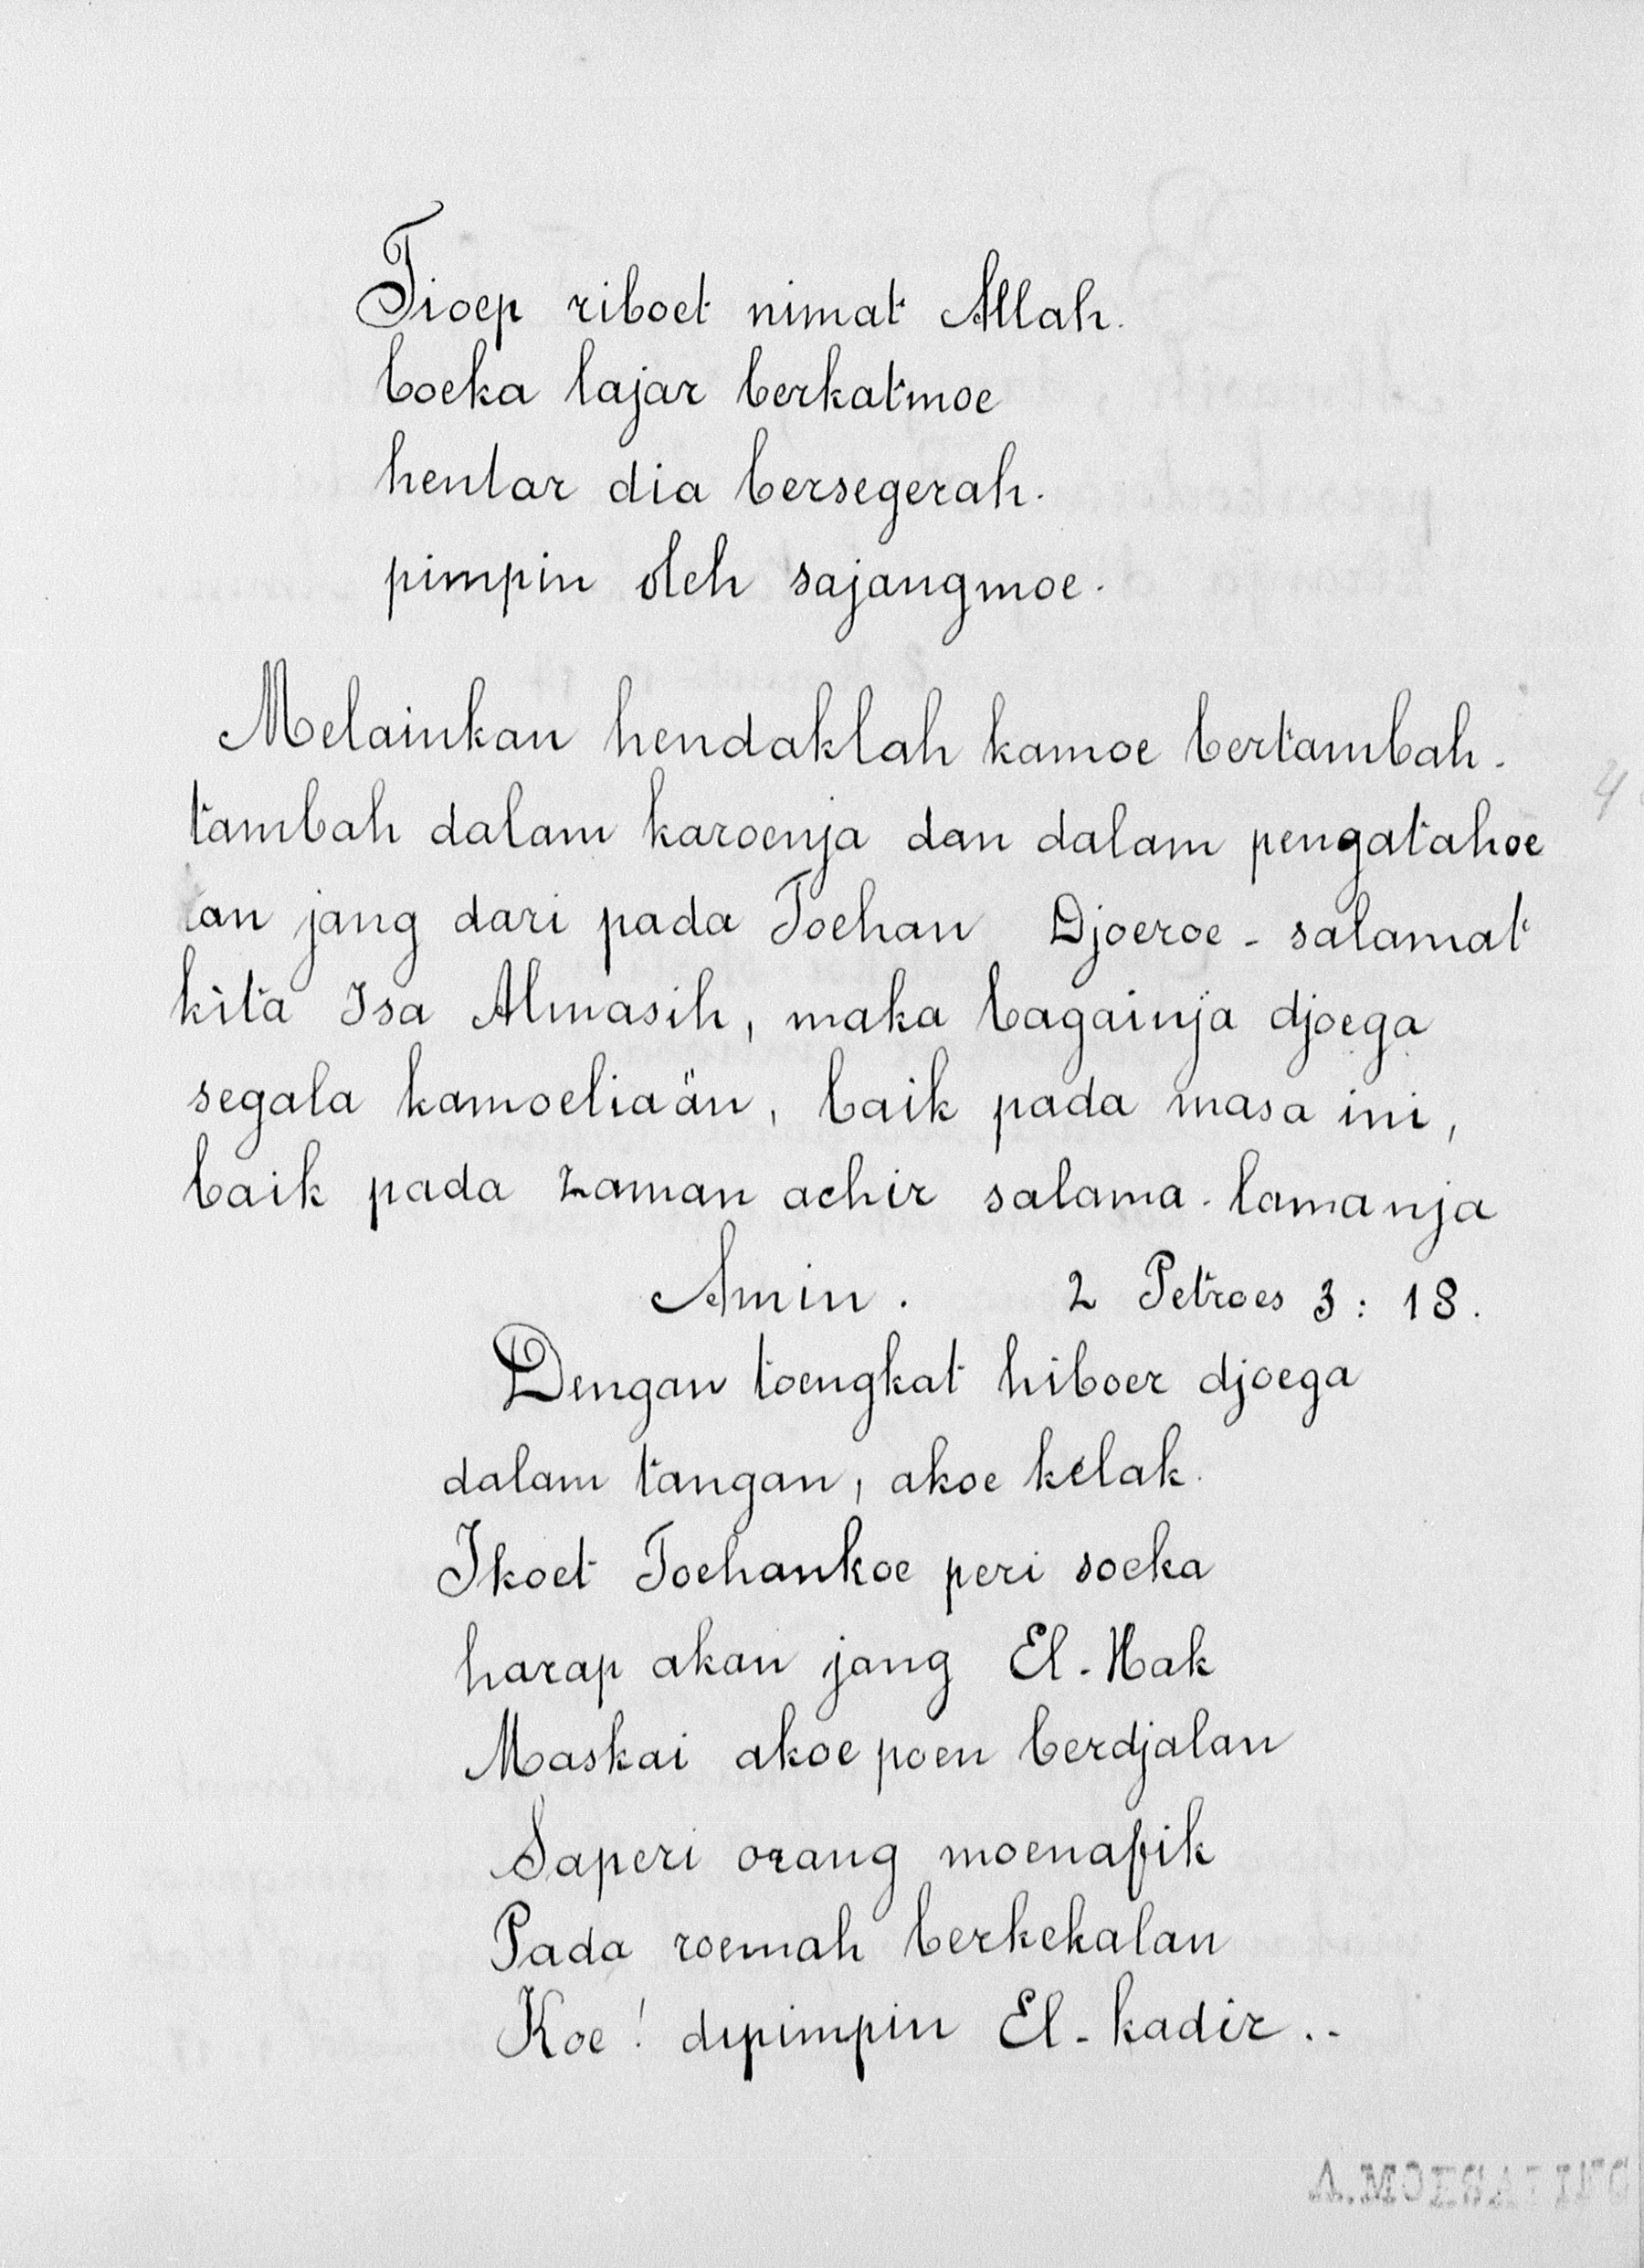 Tioep riboet nimat Allah.
boeka lajar berkatmoe
hentar dia bersegerah.
pimpin oleh sajangmoe.
Melainkan hendaklah kamoe bertambah-
tambah dalam karoenja dan dalam pengatahoe
an jang dari pada Toehan Djoeroe-salamat
kita Isa Almasih, maka bagainja djoega
segala kamoeliaän, baik pada masa ini,
baik pada zaman achir salama-lamanja
Amin. 2 Petroes 3:18.
Dengan toengkat hiboer djoega
dalam tangan, akoe kelak.
Ikoet Toehankoe peri soeka
harap akan jang El-Hak
Maskai akoe poen berdjalan
Saperi orang moenafik
Pada roemah berkekalan
Koe! dipimpin El-kadir..
4